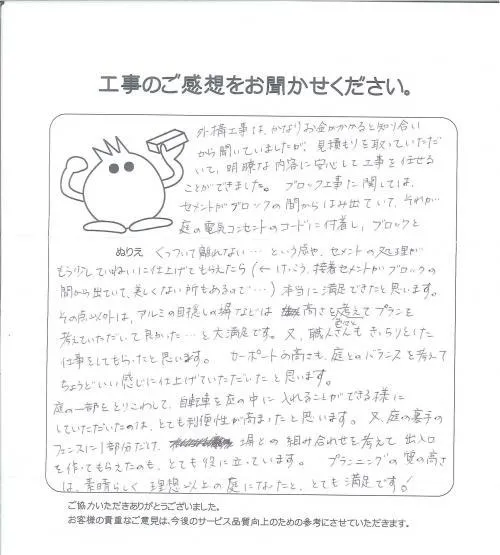 工事のご感想をお聞かせください。
外構工事は、かなりお金がかかると知り合い
から聞いていましたが、見積もりを取っていただ
いて、明瞭な内容に安心して工事を任せる
ことができました。ブロック工事に関しては、
セメントがブロックの間からはみ出ていて、それが
庭の電気コンセントのコードに付着し、ブロックと
ぬりえ
くっついて離れない…という感や、セメントの処理が
もう少していねいに仕上げてもらえたら(←けっこう、接着セメントがブロックの
間から出ていて、美しくない所もあるので…)本当に満足できたと思います。
その点以外は、アルミの目隠しの塀などは高さを考えてプランを
考えていただいて良かった…と大満足です。又、職人さんもきっちりとした
仕事をしてもらったと思います。カーポートの高さも、庭とのバランスを考えて
ちょうどいい感じに仕上げていただいたと思います。
庭の一部をとりこわして、自転車を庭の中に入れることができる様に
していただいたのは、とても利便性が高まったと思います。又、庭の裏手の
フェンスに1部分だけ、塀との組み合わせを考えて出入口
を作ってもらえたのも、とても役に立っています。プランニングの質の高さ
は、素晴らしく理想以上の庭になったと、とても満足です!
ご協力いただきありがとうございました。
お客様の貴重なご意見は、今後のサービス品質向上のための参考にさせていただきます。